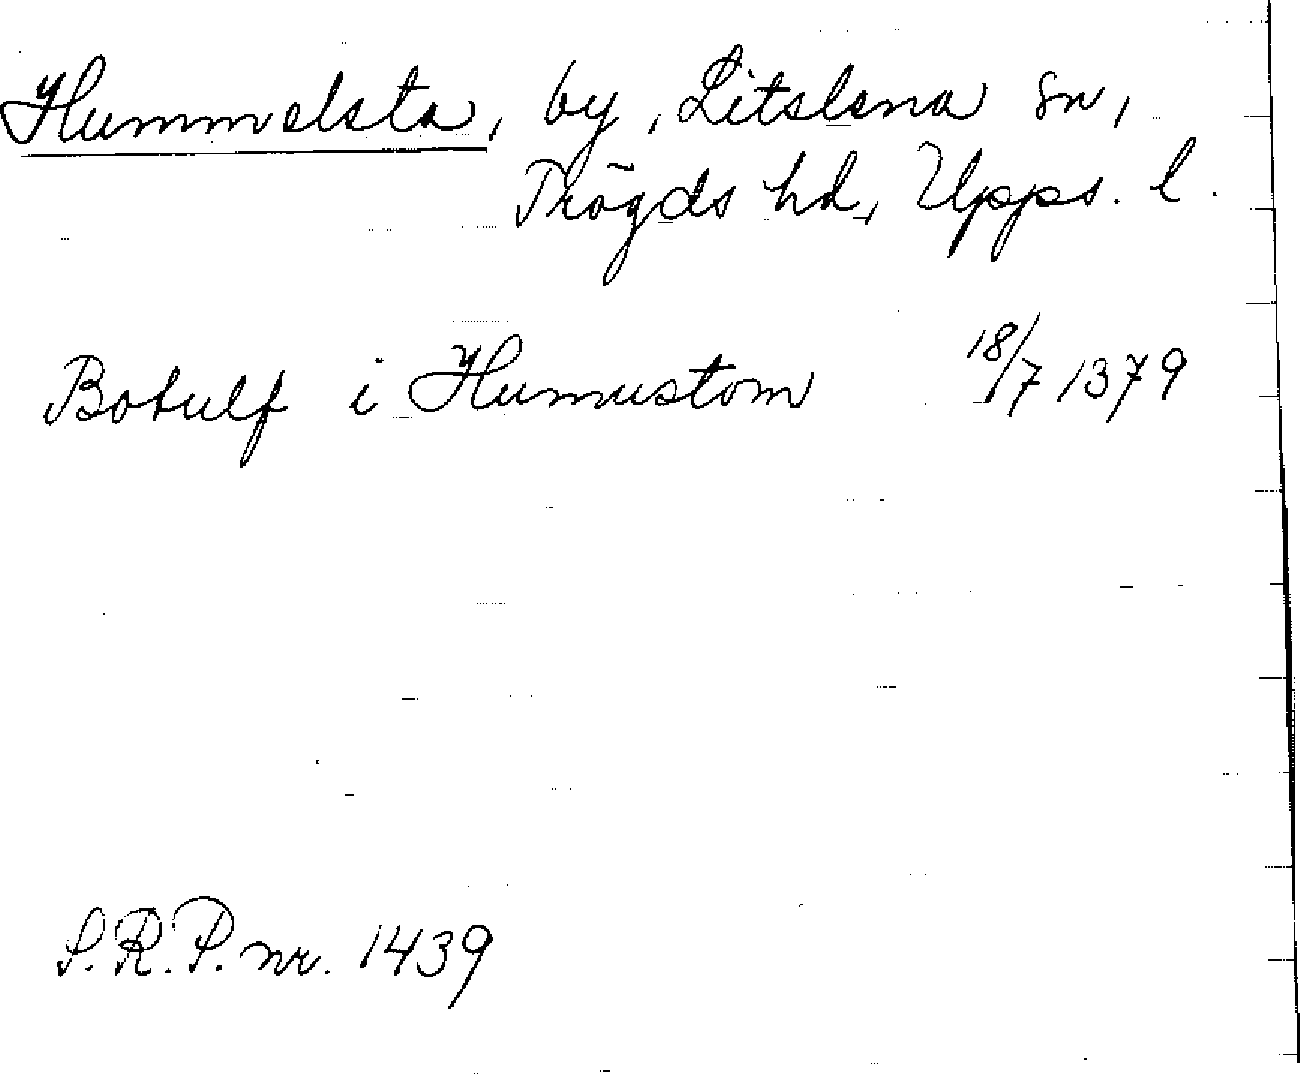 Hummelsta, by, Litslena sn,
Trögds hd, Upps. l.
Botulf i Humustom 18/7 1379
S.R.P. nr. 1439